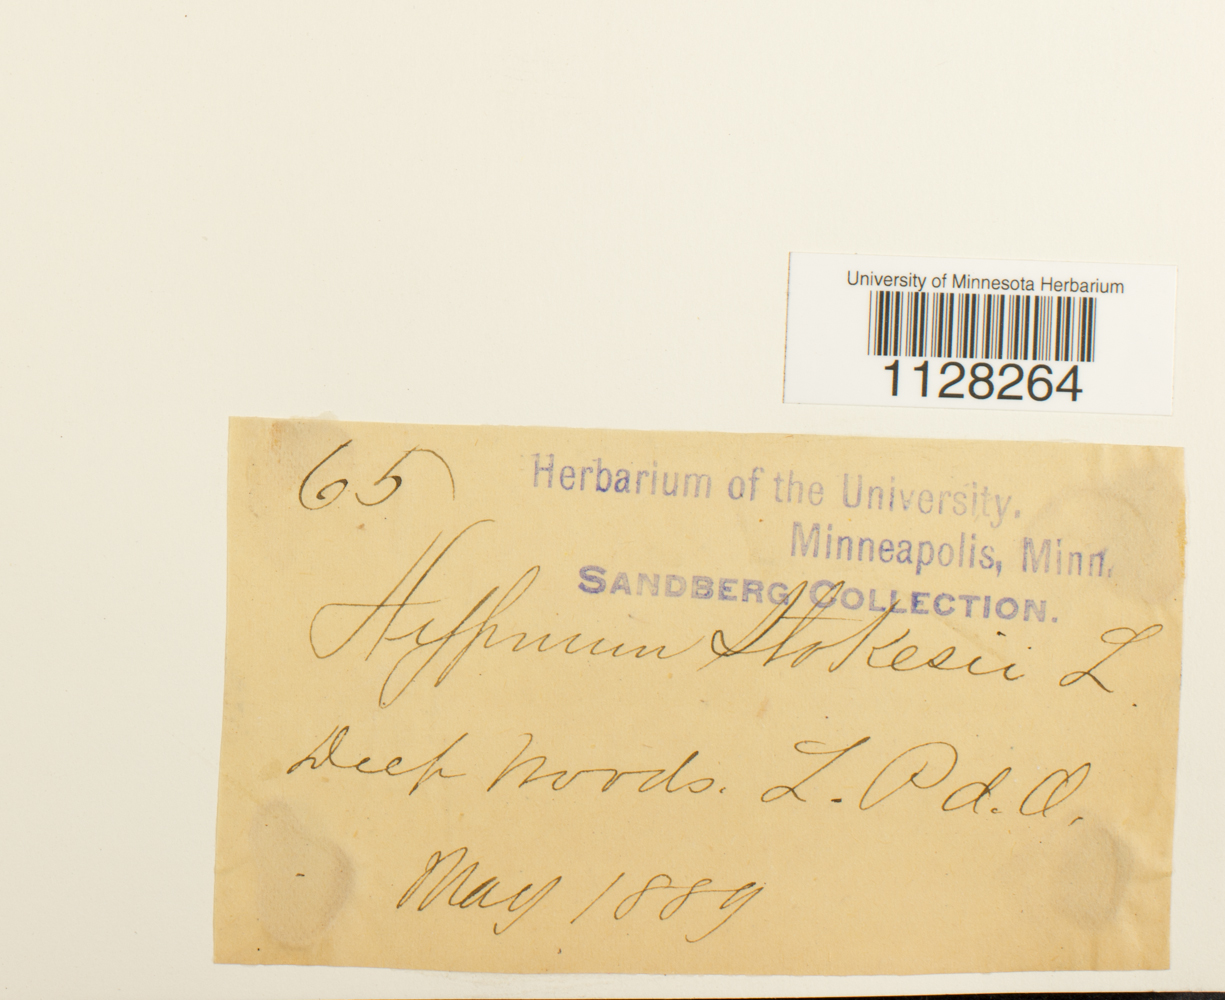 University of Minnesota Herbarium
1128264
65)
Herbarium of the University.
Minneapolis, Minn.
SANDBERG COLLECTION.
Hypnum Stokesii L.
Deep Woods. L. P d. O.
May 1889